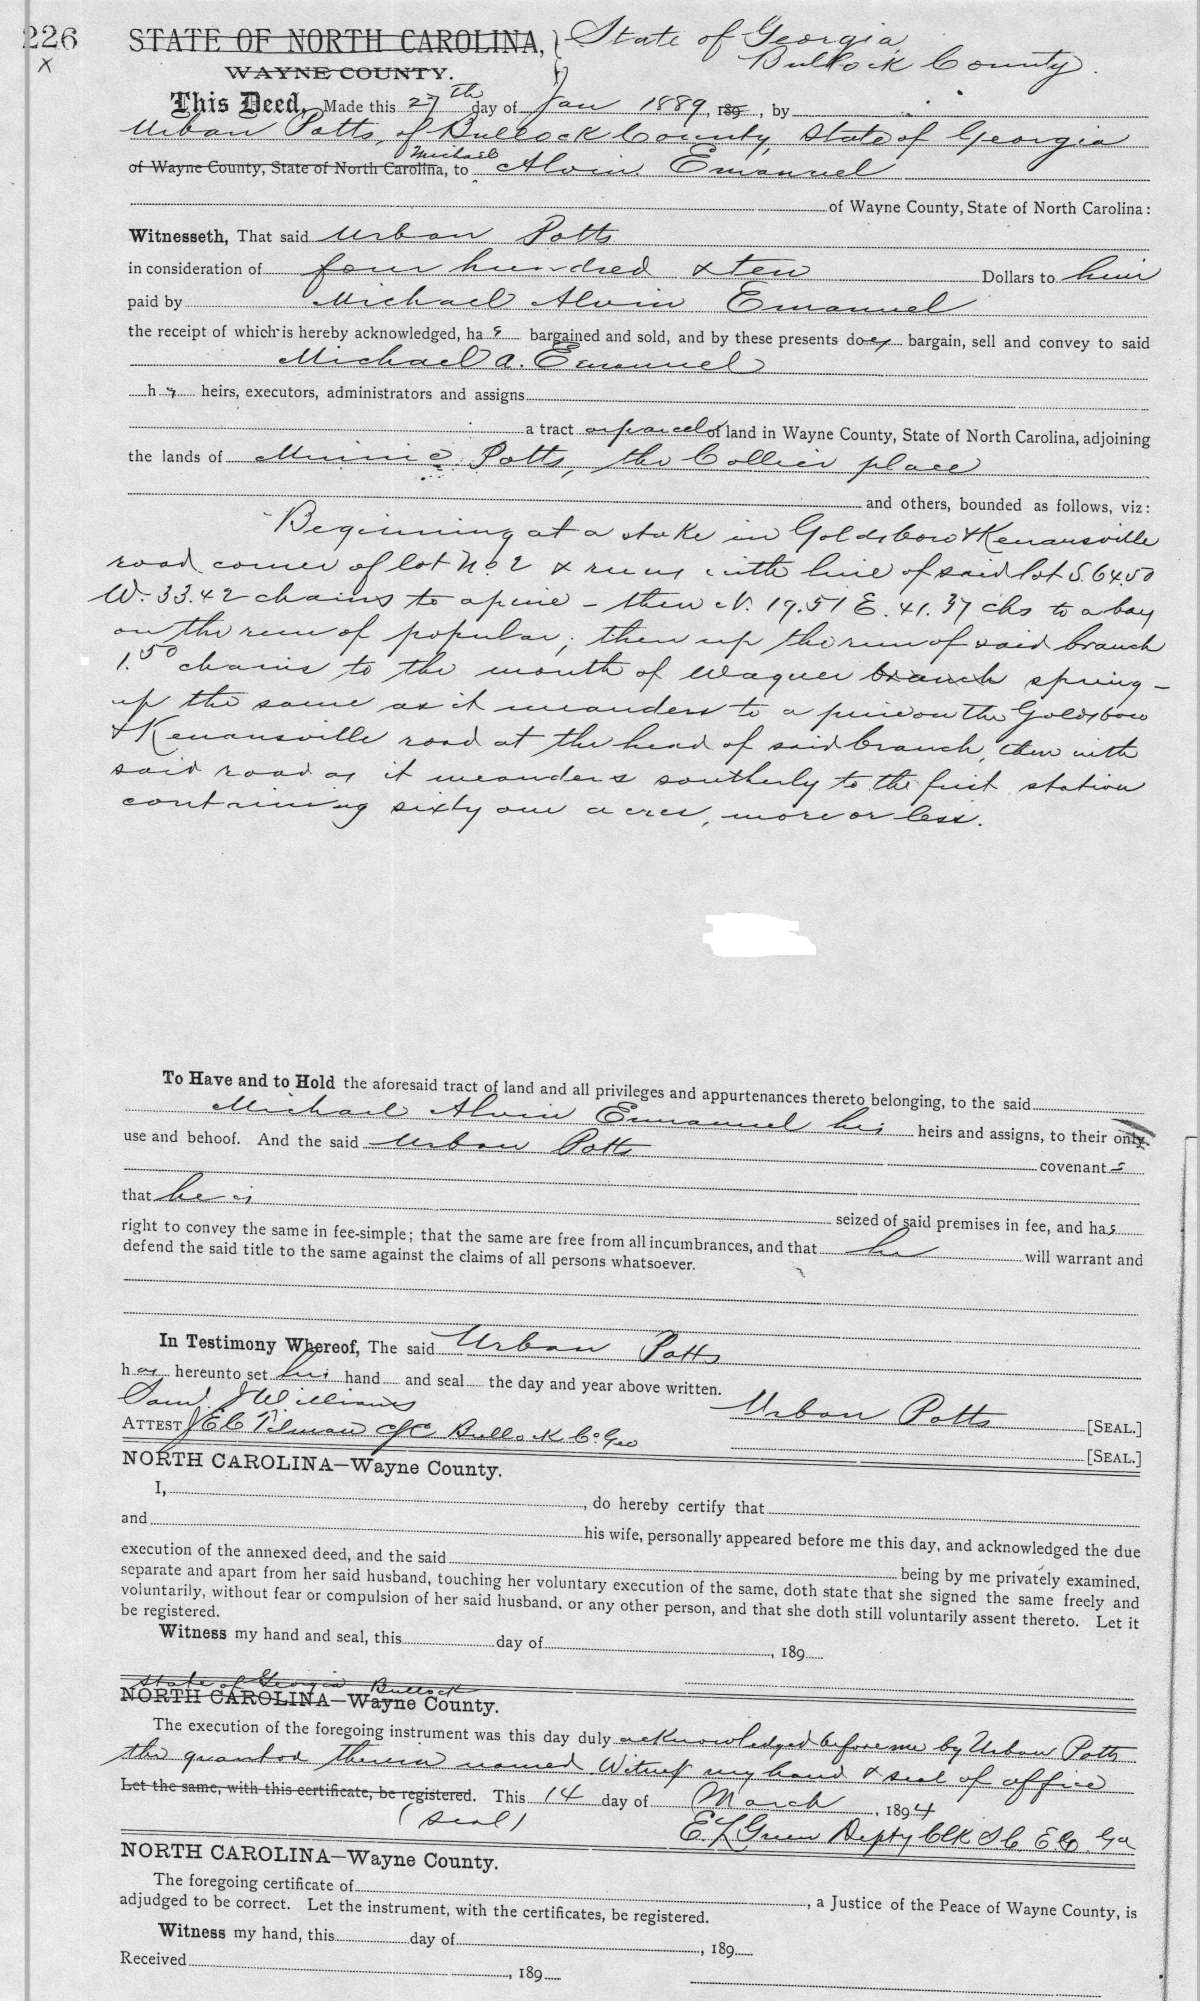 226
x
STATE OF NORTH CAROLINA, } State of Georgia,
WAYNE COUNTY. } Bullock County.
This Deed, Made this 27th day of Jan 1889, 189 , by
Urban Potts, of Bullock County, State of Georgia
of Wayne County, State of North Carolina, to Michael Alvin Emanuel
of Wayne County, State of North Carolina:
Witnesseth, That said Urban Potts
in consideration of four hundred & ten Dollars to him
paid by Michael Alvin Emanuel
the receipt of which is hereby acknowledged, has bargained and sold, and by these presents does bargain, sell and convey to said
Michael A. Emanuel
h is heirs, executors, administrators and assigns
a tract or parcel of land in Wayne County, State of North Carolina, adjoining
the lands of Minnie Potts, the Collier place
and others, bounded as follows, viz:
Beginning at a stake in Goldsboro & Kenansville
road corner of lot No. 2 & runs with line of said lot S. 64.50
W. 33.42 chains to a pine - then N. 19.51 E. 41.37 chs to a bay
on the run of popular; then up the run of said branch
1.50 chains to the mouth of Wagner branch spring -
up the same as it meanders to a pine on the Goldsboro
& Kenansville road at the head of said branch, then with
said road as it meanders southerly to the first station
containing sixty one acres, more or less.
To Have and to Hold the aforesaid tract of land and all privileges and appurtenances thereto belonging, to the said
Michael Alvin Emanuel his heirs and assigns, to their only
use and behoof. And the said Urban Potts
covenants
that he is
seized of said premises in fee, and has
right to convey the same in fee-simple; that the same are free from all incumbrances, and that he will warrant and
defend the said title to the same against the claims of all persons whatsoever.
In Testimony Whereof, The said Urban Potts
has hereunto set his hand and seal the day and year above written.
Saml J Williams
Urban Potts [SEAL.]
ATTEST J E C Tilman CSC Bullock Co. Geo
[SEAL.]
NORTH CAROLINA—Wayne County.
I, , do hereby certify that
and his wife, personally appeared before me this day, and acknowledged the due
execution of the annexed deed, and the said being by me privately examined,
separate and apart from her said husband, touching her voluntary execution of the same, doth state that she signed the same freely and
voluntarily, without fear or compulsion of her said husband, or any other person, and that she doth still voluntarily assent thereto. Let it
be registered.
Witness my hand and seal, this day of , 189
State of Georgia Bullock
NORTH CAROLINA—Wayne County.
The execution of the foregoing instrument was this day duly acknowledged before me by Urban Potts
the grantor therein named Witness my hand & seal of office
Let the same, with this certificate, be registered. This 14 day of March , 1894
(seal) E. L Green Depty Clk S. C. Ga
NORTH CAROLINA—Wayne County.
The foregoing certificate of , a Justice of the Peace of Wayne County, is
adjudged to be correct. Let the instrument, with the certificates, be registered.
Witness my hand, this day of , 189
Received , 189